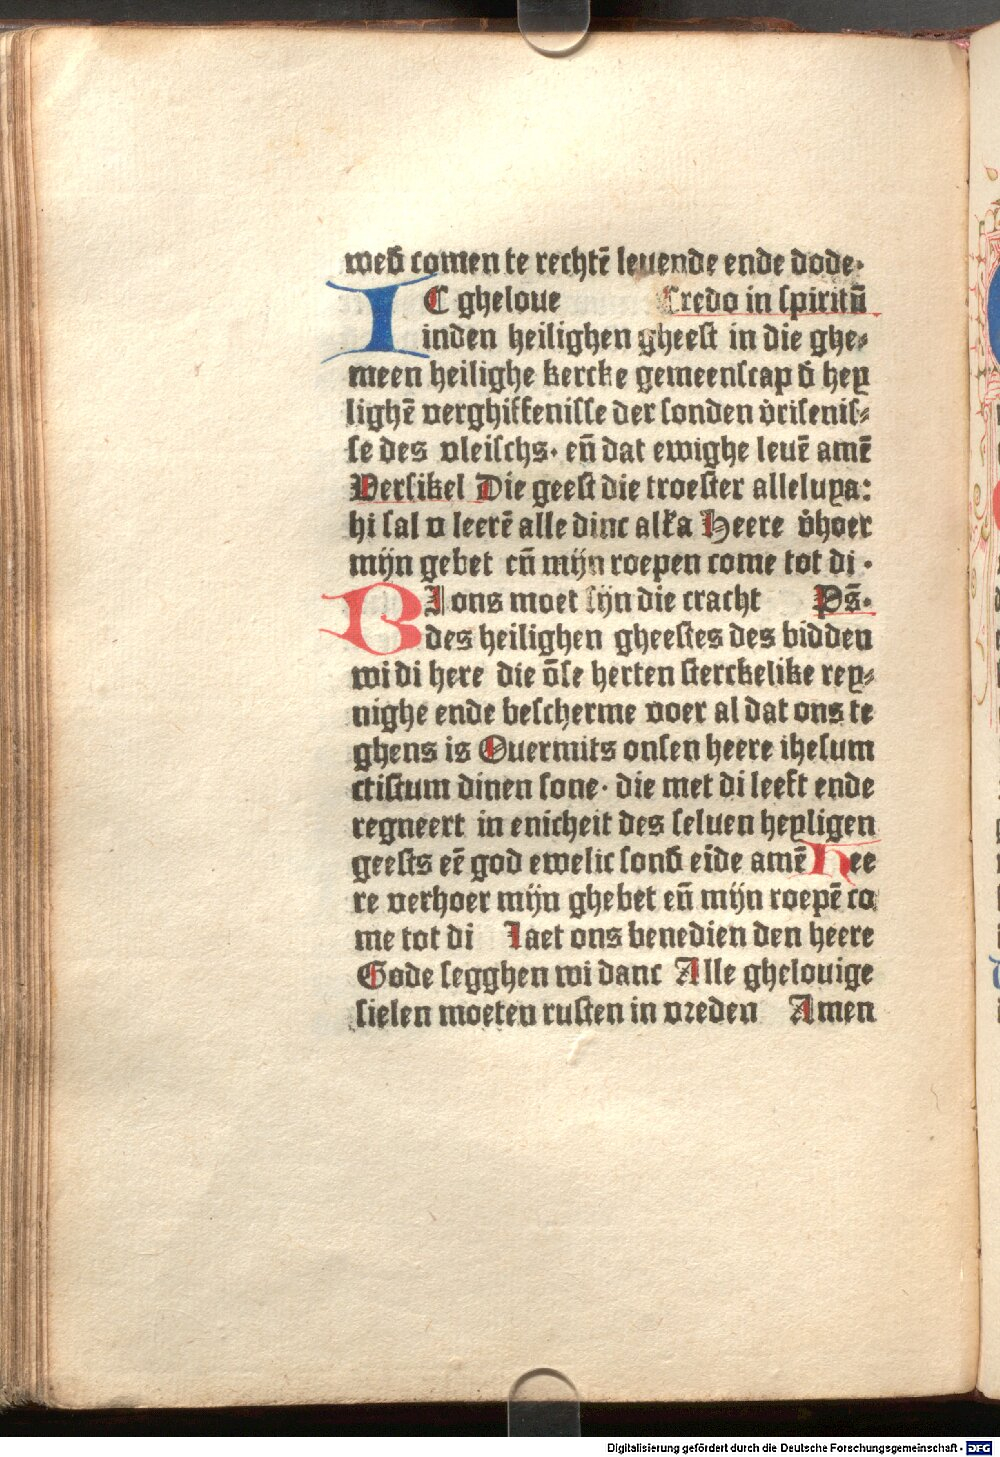 weď comen te rechtē leuende ende dode·
IC gheloue Credo in spiritū
inden heilighen gheest in die ghe⸗
meen heilighe kercke gemeenscap ď hey
lighē verghiffenisse der sonden v̓risenis⸗
se des vleischs· eñ dat ewighe leuē amē
Versikel Die geest die troester alleluya:
hi sal v leerē alle dinc alľa Heere v̓hoer
mijn gebet eñ mijn roepen come tot di ·
BI ons moet sijn die cracht Ps̄·
des heilighen gheestes des bidden
wi di here die ōse herten sterckelike rey⸗
nighe ende bescherme voer al dat ons te
ghens is Ouermits onsen heere ihesum
ctistum dinen sone· die met di leeft ende
regneert in enicheit des seluen heyligen
geests eē god ewelic sonď eīde amē Hee
re verhoer mijn ghebet eñ mijn roepē co
me tot di Laet ons benedien den heere
Gode segghen wi danc Alle ghelouige
sielen moeten rusten in vreden Amen
Digitalisierung gefördert durch die Deutsche Forschungsgemeinschaft - DFG